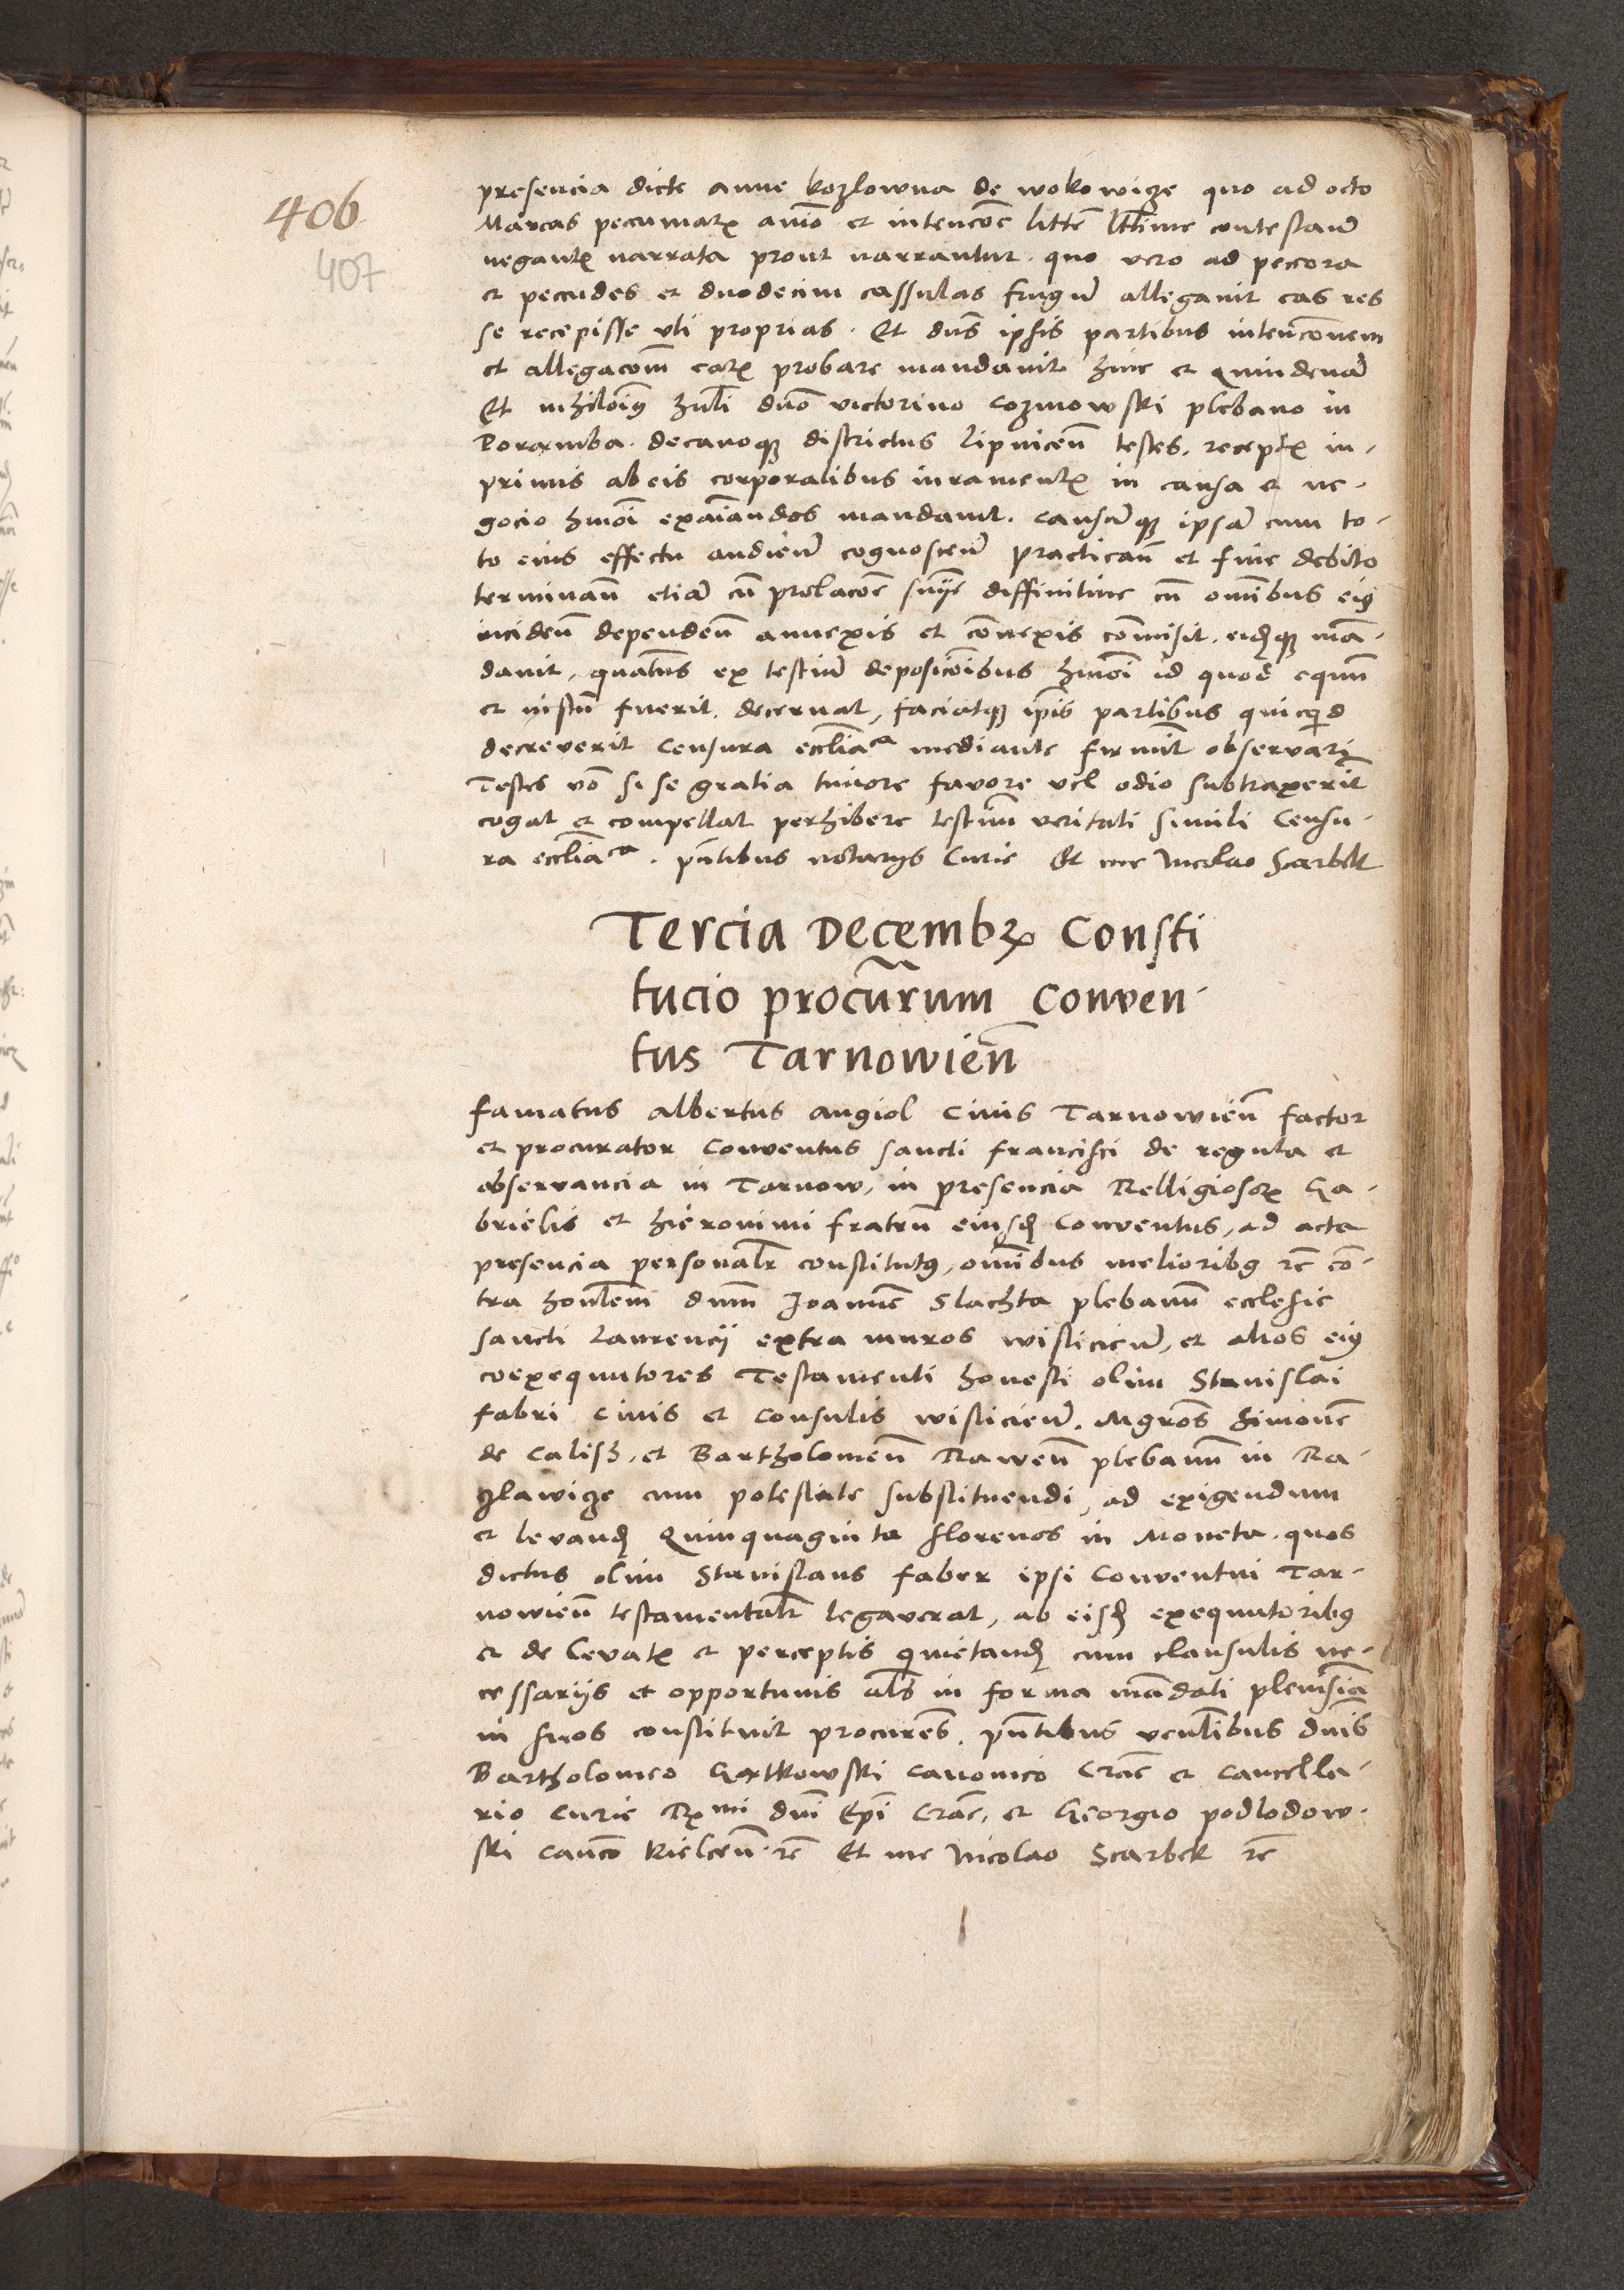 406
407
presencia dicte anne kozlowna de wokowicze quo ad octo
Marcas pecuniarꝝ animo et intencōe litem lt̄time contestan̄
negantꝭ narrata prout narrantur. quo vero ad peccora
et peccudes et duodecim cassulas frugū allegavit eas res
se recepisse uti proprias. Et dn̄s ipsis partibus intencōnem
et allegacōm earꝝ probare mandavit hinc et Quindenā
Et nihilōiꝰ hūli dnō victorino Cozmowski plebano in
Poramba. decanoqꝫ districtus lipnicen̄ testes. receptꝭ in-
primis ab eis corporalibus iuramentꝭ in causa et ne-
gocio hmōi exaiāndos mandavit. causāqꝫ ipsā cum to-
to eius effectu audien̄ cognoscen̄ practican̄ et fine debito
terminan̄ etiā cū prolacōe sn̄ie diffinitive cū omībus eiꝰ
inciden̄ dependen̄ annexis et cōnexis cōmisit. eidqꝫ mā-
davit, quatn̄s ex testiū deposicōibus hmōi id quod equū
et iustū fuerit, decernat, faciatqꝫ ip̄is partibus quicqd
decreverit Censura eccl̄iaᶜᵃ mediante firmit̄ observari
Testes vō si se gratia timore favore vel odio subtraxerīt
cogat et compellat perhibere testim̄ veritati simili Censu-
ra eccl̄iaᶜᵃ. pn̄tibus notarijs Curie Et me Nicolao Scarbek
Tercia Decembrꝭ Consti
tucio procūrum Conven-
tus Tarnowien̄
famatus albertus angiol Civis Tarnowien̄ factor
et procurator Conventus sancti francisci de regula et
observancia in Tarnow, in presencia Relligiosorꝝ Ga-
brielis et hieronimi fratrū eiusdꝫ Conventus, ad acta
presencia personalr̄ constitutꝰ, omībus melioribꝰ rc̄ cō-
tra honl̄em dnm̄ Joannē Slachta plebanū ecclesie
sancti laurencij extra muros wislicien̄, et alios eiꝰ
coexequutores Testamenti honesti olim Stanislai
fabri Civis et Consulis wislicien̄. Mgrōs Simonē
de Calish, et Bartholomeū Rawen̄ plebanū in Ra-
zlawicze cum potestate substituendi, ad exigendum
et levandꝫ Quinquaginta florenos in Moneta. quos
dictus olim Stanislaus faber ipsi Conventui Tar-
nowien̄ testamentalr̄ legaverat, ab eisdꝫ exequutoribꝰ
et de levatꝭ et perceptis quietandꝫ cum clausulis ne-
cessarijs et opportunis al̄s in forma mādati plenissīa
in suos constituit procūres. pn̄tibus venl̄ibus dn̄is
Bartholomeo Gatkowski canonico Crac̄ et Cancella-
rio Curie Rx̄mi dnī Epī Crac̄, et Georgio podlodow-
ski canco Kielcen̄ rc̄ Et me Nicolao Scarbek rc̄